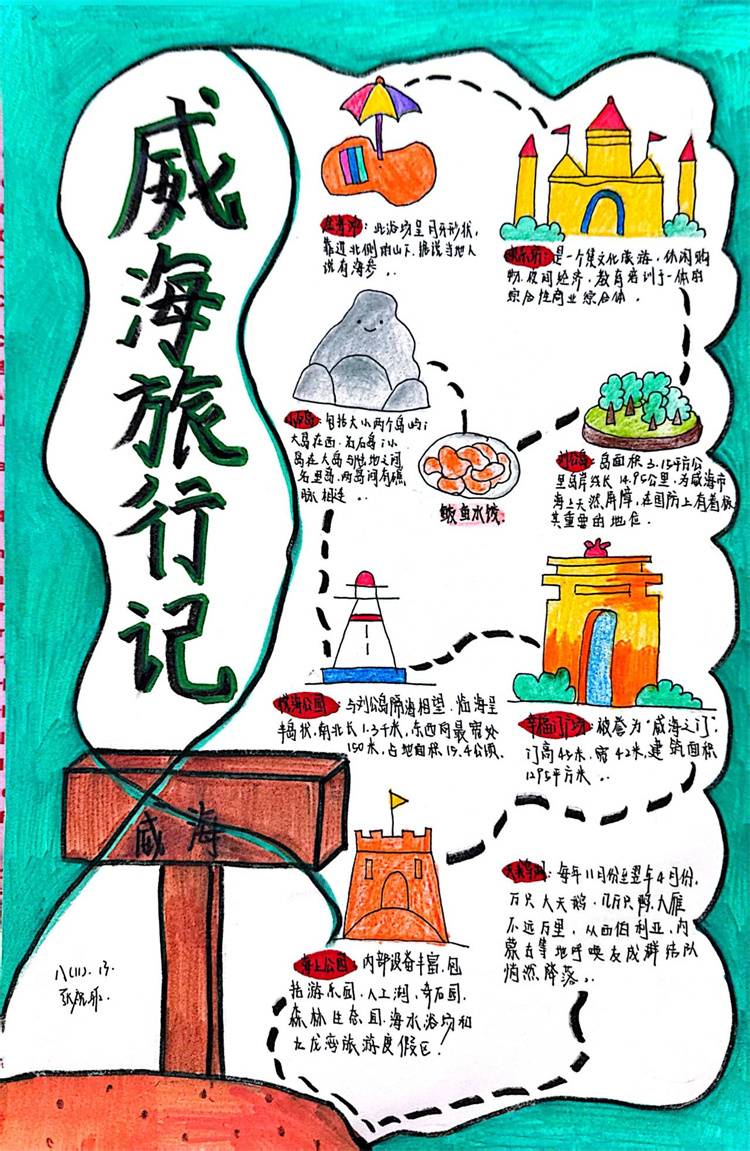 威海旅行记
此浴场呈月牙形状,
靠近北侧的山下.据说当地人
说有海参。
是一个集文化旅游,休闲购
物.夜间经济,教育培训于一体的
综合性商业综合体.
包括大小两个岛屿;
大岛在西.为石岛;小
岛在大岛与陆地之间
名里岛,两岛间有礁
脉相连。
鲅鱼水饺
刘公岛:岛面积3.15平方公
里岛岸线长14.95公里,为威海市
海上天然屏障,在国防上有着极
其重要的地位.
悦海公园:与刘公岛隔海相望.临海呈
半岛状,南北长1.3千米,东西向最宽处
150米,占地面积15.4公顷.
幸福门广场:被誉为“威海之门”.
门高45米.宽42米.建筑面积
1295平方米。
威海
每年11月份至翌年4月份,
万只大天鹅.几万只野.大雁
不远万里,从西伯利亚,内
蒙古等地呼唤友成群结队
悄然降落。
海上公园:内部设备丰富,包
括游乐园.人工湖,奇石园.
森林生态园.海水浴场和
九龙湾旅游度假区.
八(11).13.